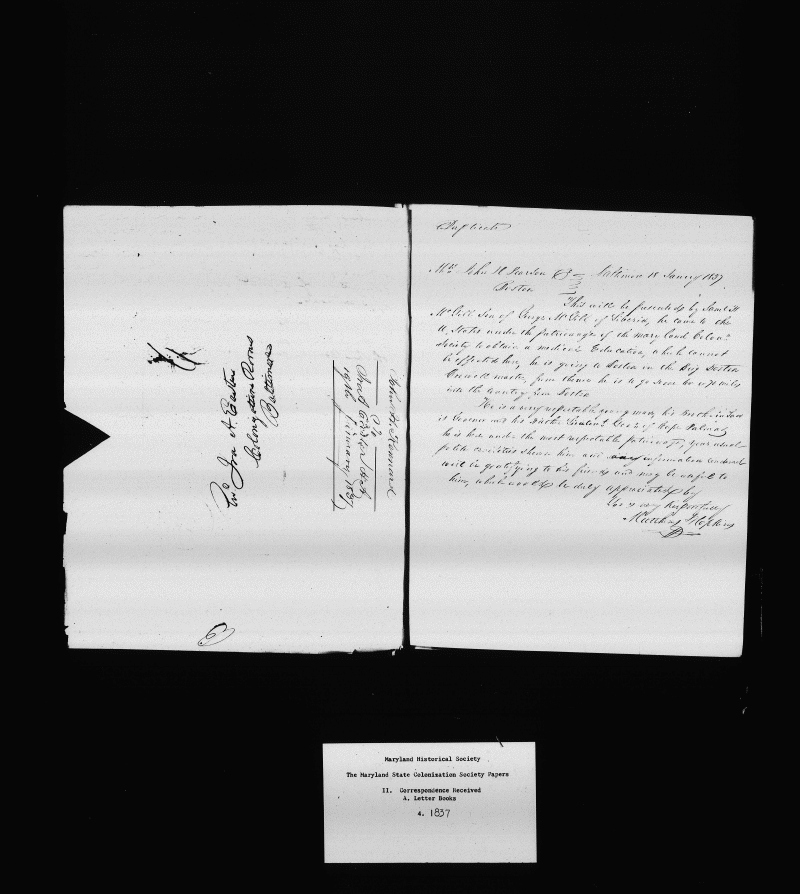 Mr Ira A. Easter
Colonization Rooms
Baltimore
Duplicate
Mr John H. Pearson
Baltimore 18 January 1837
Boston
This will be presented by Saml F
McGill Son of George McGill of Liberia, he came to the
U. States under the patronage of the Maryland Colon
Society to obtain a medical Education, which cannot
be effected here, he is going to Boston in the Brig Boston
master, from thence he is to go some
into the country from Boston
He is a very respectable young man, his Brother in law
is Governor and his Father Lieutent Govr of Cape Palmas,
he is here under the most respectable patronage, your usual
polite civilities shown him and any information rendered
will be gratifying to his friends and may be useful to
him, which would be duly appreciated by
Yours very Respectfully
Hopkins
Maryland Historical Society
The Maryland State Colonization Society Papers
II. Correspondence Received
A. Letter Books
4. 1837